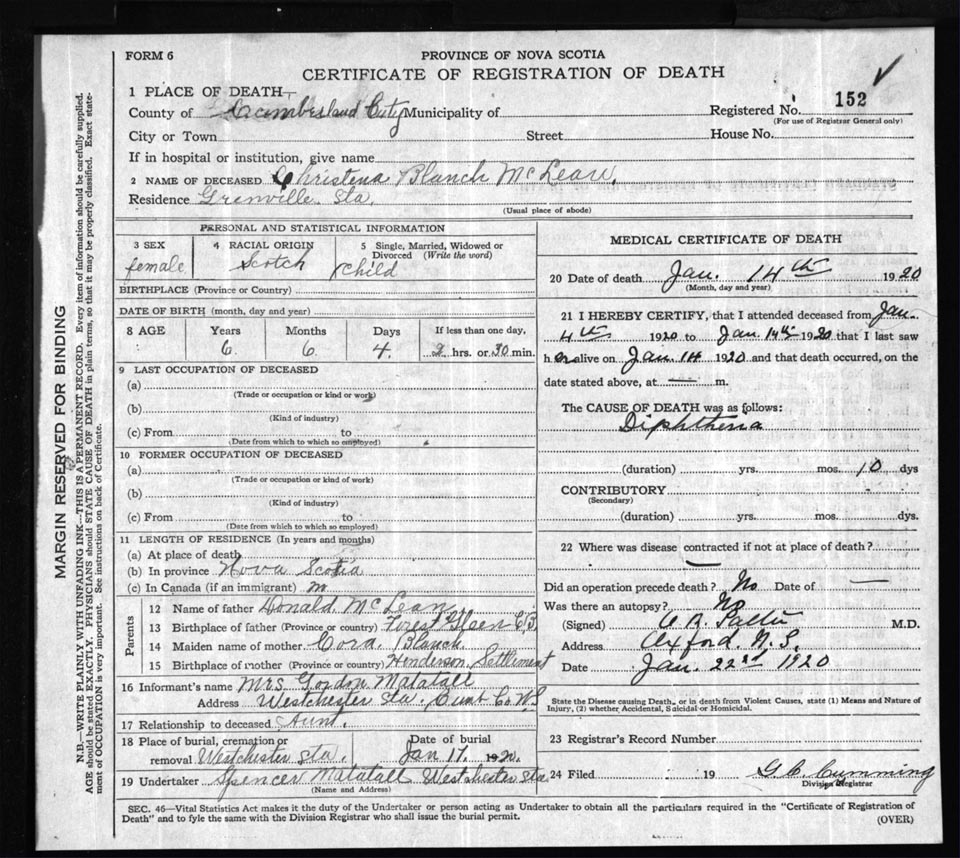 FORM 6
PROVINCE OF NOVA SCOTIA
CERTIFICATE OF REGISTRATION OF DEATH
1 PLACE OF DEATH
County of Cumberland Municipality of
Registered No. 152
(For use of Registrar General only)
City or Town Street House No.
If in hospital or institution, give name
2 NAME OF DECEASED Christena Blanch McLean
Residence Grenville Sta.
(Usual place of abode)
PERSONAL AND STATISTICAL INFORMATION
3 SEX 4 RACIAL ORIGIN 5 Single, Married, Widowed or Divorced (Write the word)
female Scotch child
BIRTHPLACE (Province or Country)
DATE OF BIRTH (month, day and year)
8 AGE Years Months Days If less than one day,
6 6 4. 2 hrs. or 30 min.
9 LAST OCCUPATION OF DECEASED
(a)
(Trade or occupation or kind or work)
(b)
(Kind of industry)
(c) From to
(Date from which to which so employed)
10 FORMER OCCUPATION OF DECEASED
(a)
(Trade or occupation or kind of work)
(b)
(Kind of industry)
(c) From to
(Date from which to which so employed)
11 LENGTH OF RESIDENCE (In years and months)
(a) At place of death
(b) In province Nova Scotia
(c) In Canada (if an immigrant)
Parents
12 Name of father Donald McLean
13 Birthplace of father (Province or country)
14 Maiden name of mother. Cora Blanch
15 Birthplace of mother (Province or country) Henderson Settlement
16 Informant's name Mrs Gordon Matatall
Address Westchester Sta. Co. N S
17 Relationship to deceased Aunt.
18 Place of burial, cremation or removal Westchester Sta. Date of burial Jan 17. 1920.
19 Undertaker Spencer Matatall Westchester Sta
(Name and Address)
MEDICAL CERTIFICATE OF DEATH
20 Date of death Jan. 14th 1920
(Month, day and year)
21 I HEREBY CERTIFY, that I attended deceased from Jan.
4th 1920 to Jan 14th 1920 that I last saw
her alive on Jan 14 1920 and that death occurred, on the
date stated above, at — m.
The CAUSE OF DEATH was as follows:
Diphtheria
(duration) yrs. mos. 10 dys
CONTRIBUTORY
(Secondary)
(duration) yrs. mos. dys.
22 Where was disease contracted if not at place of death?
—
Did an operation precede death? No Date of —
Was there an autopsy? No
(Signed) M.D.
Address Oxford N. S.
Date Jan. 22nd 1920
State the Disease causing Death, or in death from Violent Causes, state (1) Means and Nature of
Injury, (2) whether Accidental, Suicidal or Homicidal.
23 Registrar's Record Number
24 Filed 19 G. C. Cumming
Division Registrar
SEC. 46—Vital Statistics Act makes it the duty of the Undertaker or person acting as Undertaker to obtain all the particulars required in the "Certificate of Registration of
Death" and to fyle the same with the Division Registrar who shall issue the burial permit.
(OVER)
MARGIN RESERVED FOR BINDING
N.B.—WRITE PLAINLY WITH UNFADING INK—THIS IS A PERMANENT RECORD. Every item of information should be carefully supplied.
AGE should be stated EXACTLY. PHYSICIANS should STATE CAUSE OF DEATH in plain terms, so that it may be properly classified. Exact state-
ment of OCCUPATION is very important. See instructions on back of Certificate.